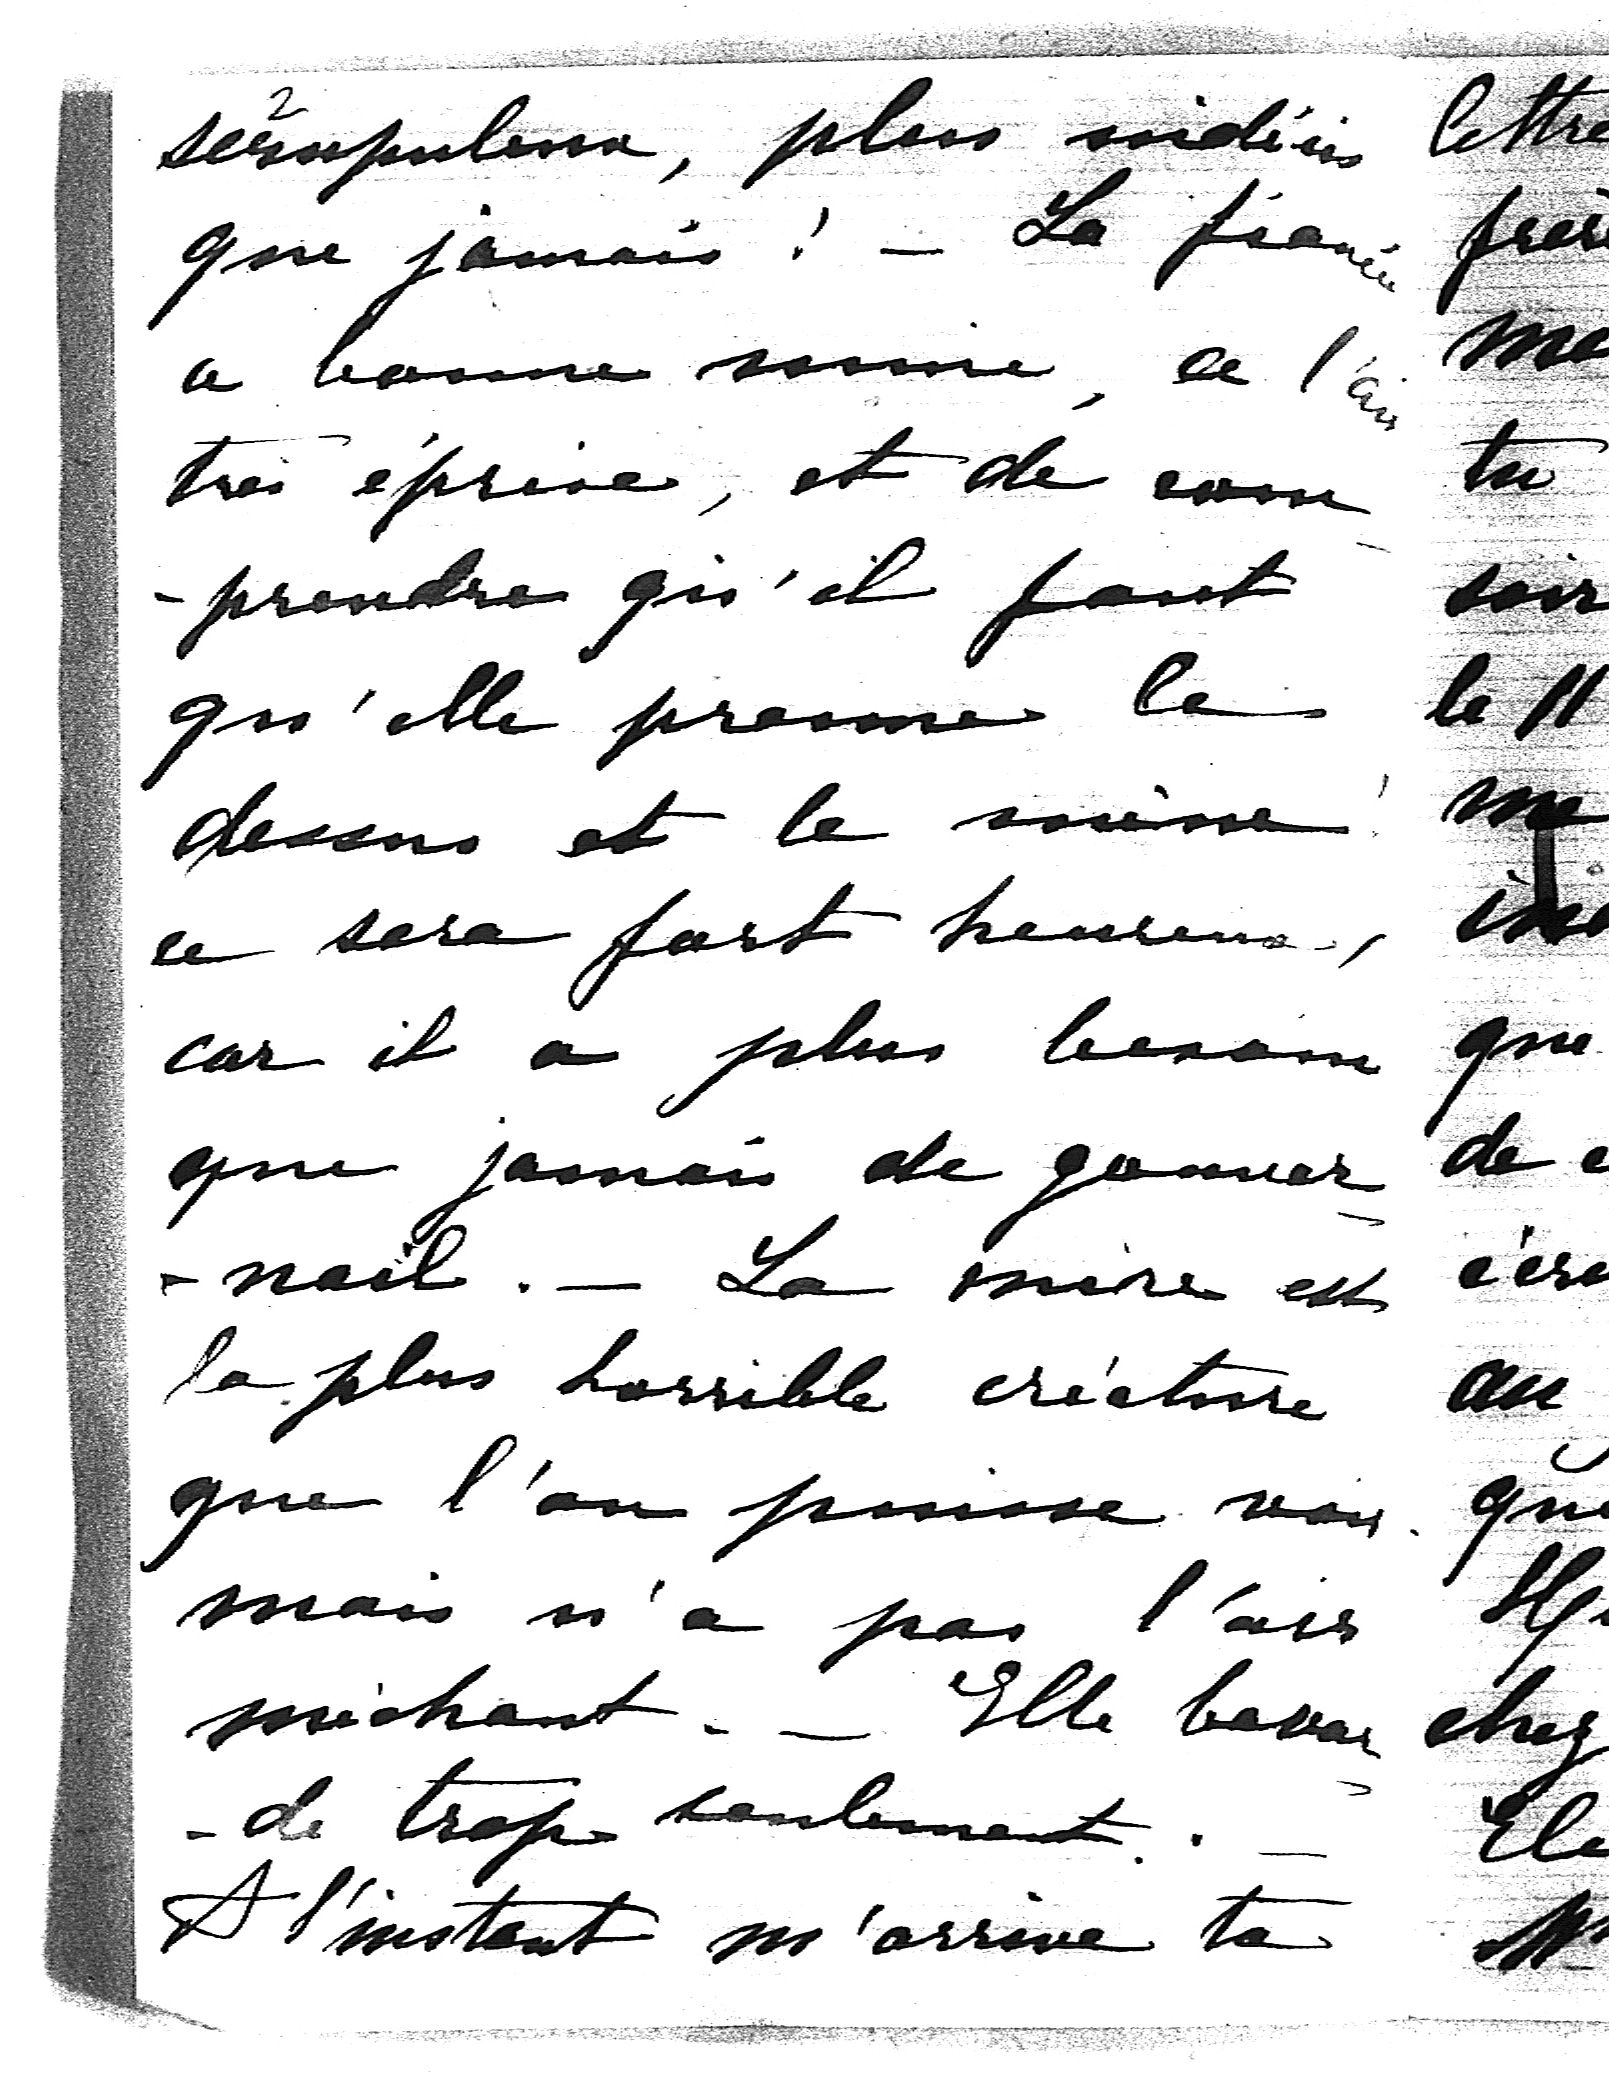 2
scrupuleux, plus indécis
que jamais ! — La fiancée
a bonne mine, a l'air
très éprise, et de com-
-prendre qu'il faut
qu'elle prenne le
dessus et le mène !
ce sera fort heureux,
car il a plus besoin
que jamais de gouver-
-nail. — La mère est
la plus horrible créature
que l'on puisse voir.
mais n'a pas l'air
méchant. — Elle bavar-
-de trop seulement. —
A l'instant m'arrive ta
lettre
frère
tu
soir
le 11
me
que
de
au
que
chez